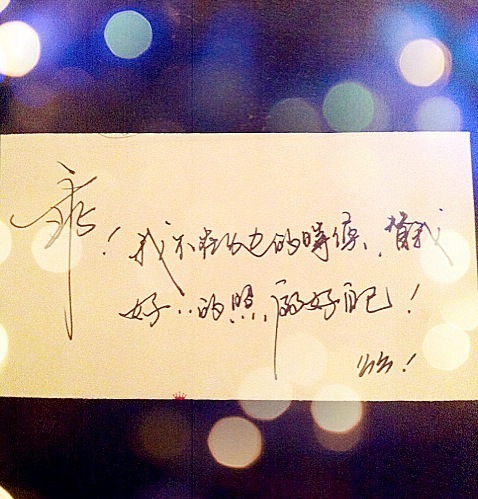 乖！我不在的時候，替我
好..的照顧好自己！